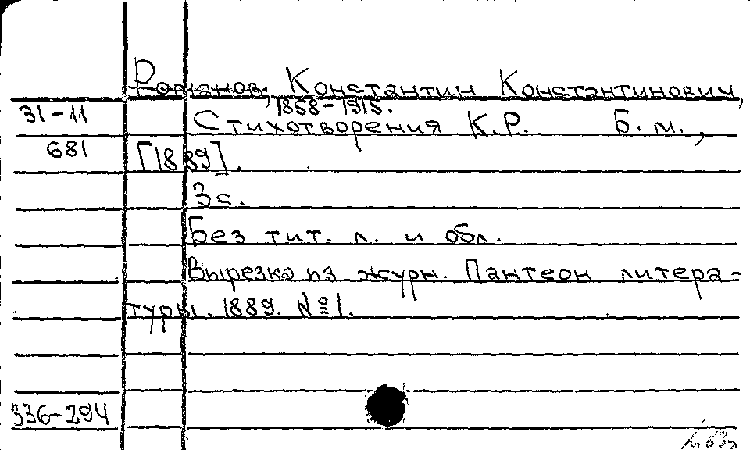 Романов, Константин Константинович,
1858-1915.
31-11 Стихотворения К.Р. Б.м.,
681 [1889].
3с.
Без тит. л. и обл.
Вырезка из журн. Пантеон литера-
туры. 1889. №1.
336-294